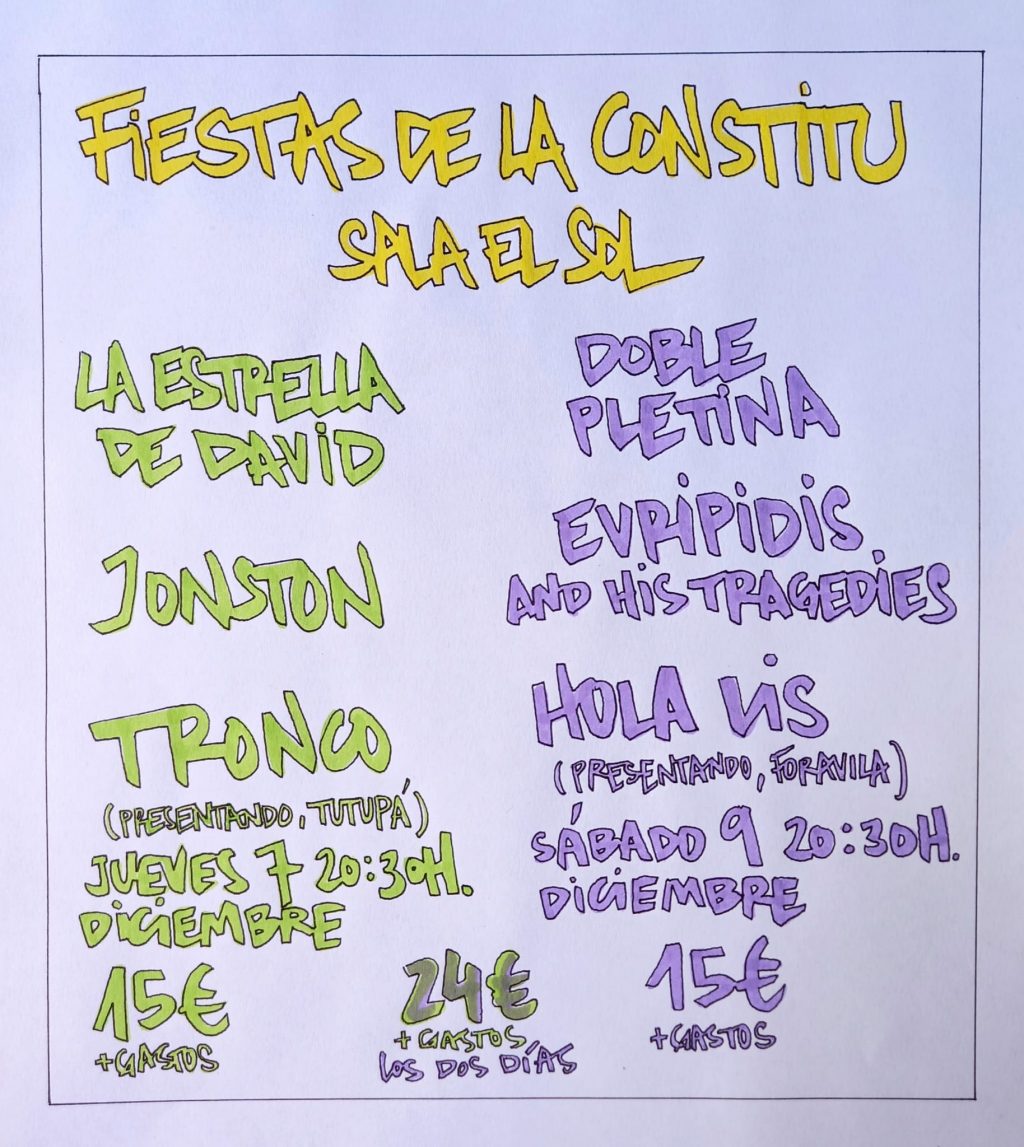 FiESTAS DE LA CONSTiTU
SALA EL SOL
LA ESTRELLA
DE DAViD
JONSTON
TRONCO
(PRESENTANDO, TUTUPÁ)
JUEVES 7 20:30H.
DiCiEMBRE
15€
+GASTOS
DOBLE
PLETiNA
EVRiPiDiS
AND HiS TRAGEDiES
HOLA ViS
(PRESENTANDO, FORAViLA)
SÁBADO 9 20:30H.
DiCiEMBRE
15€
+GASTOS
24€
+GASTOS
LOS DOS DÍAS